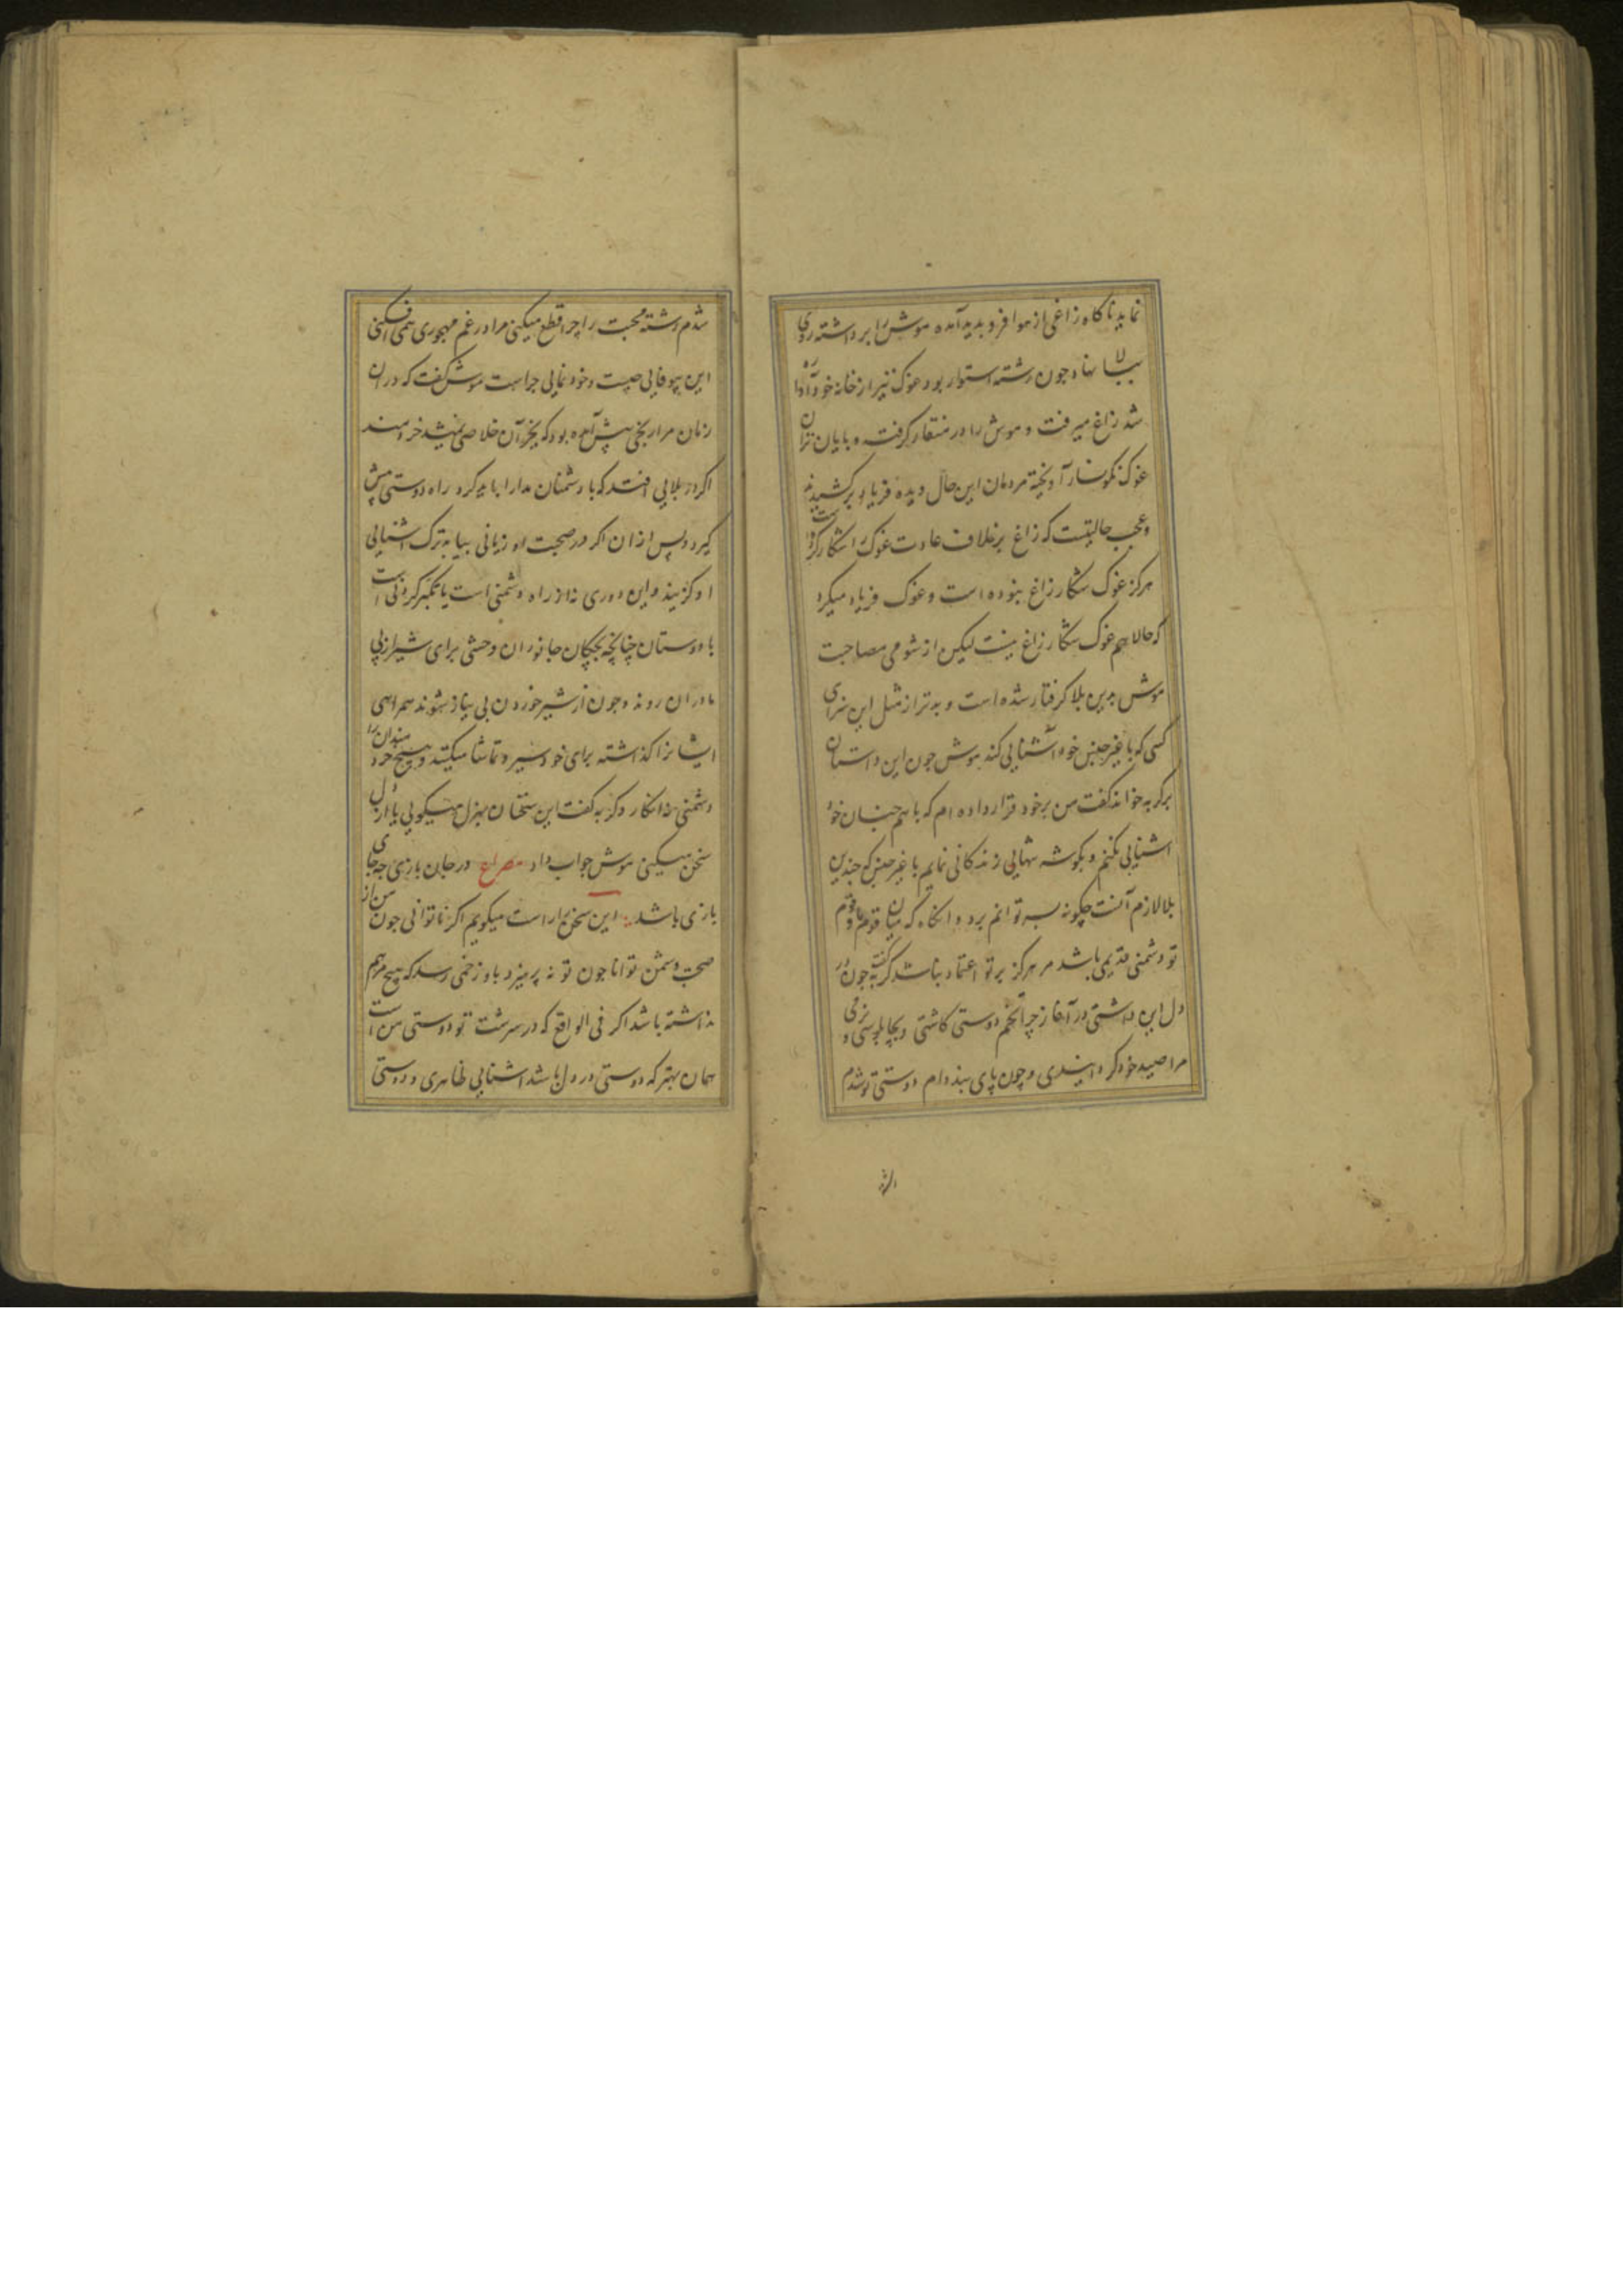 نماید ناکاه زاغی از هوا فرو بدید آمده موش را برداشته روی
ببالا نهاد جون رشته استوار بود غوک نیز از خانه خود آواره
شد زاغ میرفت و موش را در منقار کرفته و بایان تران
غوک نکونسار آویخته مردمان این حال دیده فریاد برکشیدند
و عجب حالیتست که زاغ برخلاف عادت غوک را شکار کرده است
هرکز غوک شکار زاغ نبوده است و غوک فریاد میکرد
که حالا هم غوک شکار زاغ نیست لیکن از شومی مصاحبت
موش بدین بلا کرفتار شده است و بدتر از مثل این سزای
کسی که با غیر جنس خود آشنایی کند موش جون این داستان
بر کربه خواند کفت من بر خود قرار داده ام که با هم جنسان خود
اشنایی نکنم و بکوشه تنهایی زندکانی نمایم با غیر جنس که جندین
بلا لازم آنست چکونه بسر توانم برد و انکاه که میان قوم ما و قوم
تو دشمنی قدیمی باشد مر هرکز بر تو اعتماد نباشد کربه کفت جون در
دل این داشتی در آغاز چرا تخم دوستی کاشتی و بچابلوسی و نرمی
مرا صید خود کردانیدی و چون پای بند دام دوستی تو شدم
شدم رشته محبت را چرا قطع میکنی مرا در غم مهجوری همی افکنی
این بیوفایی چیست و خود نمایی چراست موش کفت که در ان
زمان مرا رنجی پیش آمده بود که بجز آن خلاصی نمیشد خردمند
اکر در بلایی افتد که با دشمنان مدارا باید کرد راه دوستی پیش
کیرد و پس از ان اکر در صحبت او زیانی بیابد ترک اشنایی
او کزیند و این دوری نه از راه دشمنی است یا تکبر کردنی است
با دوستان چنانچه بچکان جانوران وحشی برای شیر از پی
مادران روند و جون از شیر خوردن بی نیاز شوند همراهی
ایشانرا کذاشته برای خود سیر و تماشا میکنند و هیچ خردمندان را
دشمنی نه انکارد کربه کفت این سخنان بهزل میکویی یا از دل
سخن میکنی موش جواب داد مصراع در جان بازی چه جای
بازی باشد این سخن را راست میکویم اکر ناتوانی جون من از
صحبت دشمن توانا جون تو نه پرهیزد باو زخمی رسد که هیچ مرهم
نداشته باشد اکر فی الواقع که در سرشت تو دوستی من است
همان بهتر که دوستی در دل باشد اشنایی ظاهری و دوستی